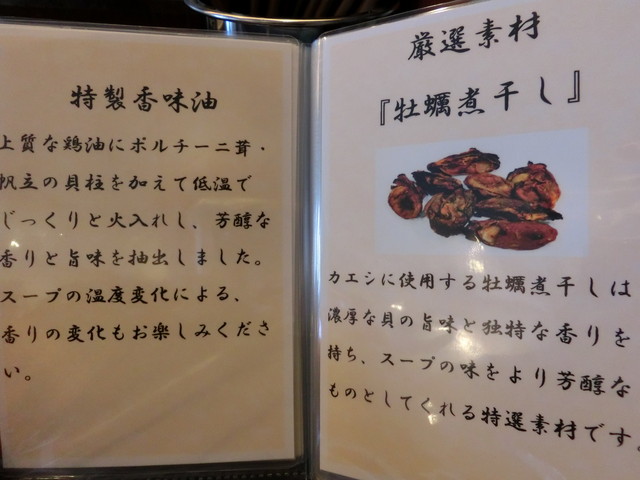 特製香味油
上質な鶏油にポルチーニ茸・
帆立の貝柱を加えて低温で
じっくりと火入れし、芳醇な
香りと旨味を抽出しました。
スープの温度変化による、
香りの変化もお楽しみくださ
い。
厳選素材
『牡蠣煮干し』
カエシに使用する牡蠣煮干しは
濃厚な貝の旨味と独特な香りを
持ち、スープの味をより芳醇な
ものとしてくれる特選素材です。